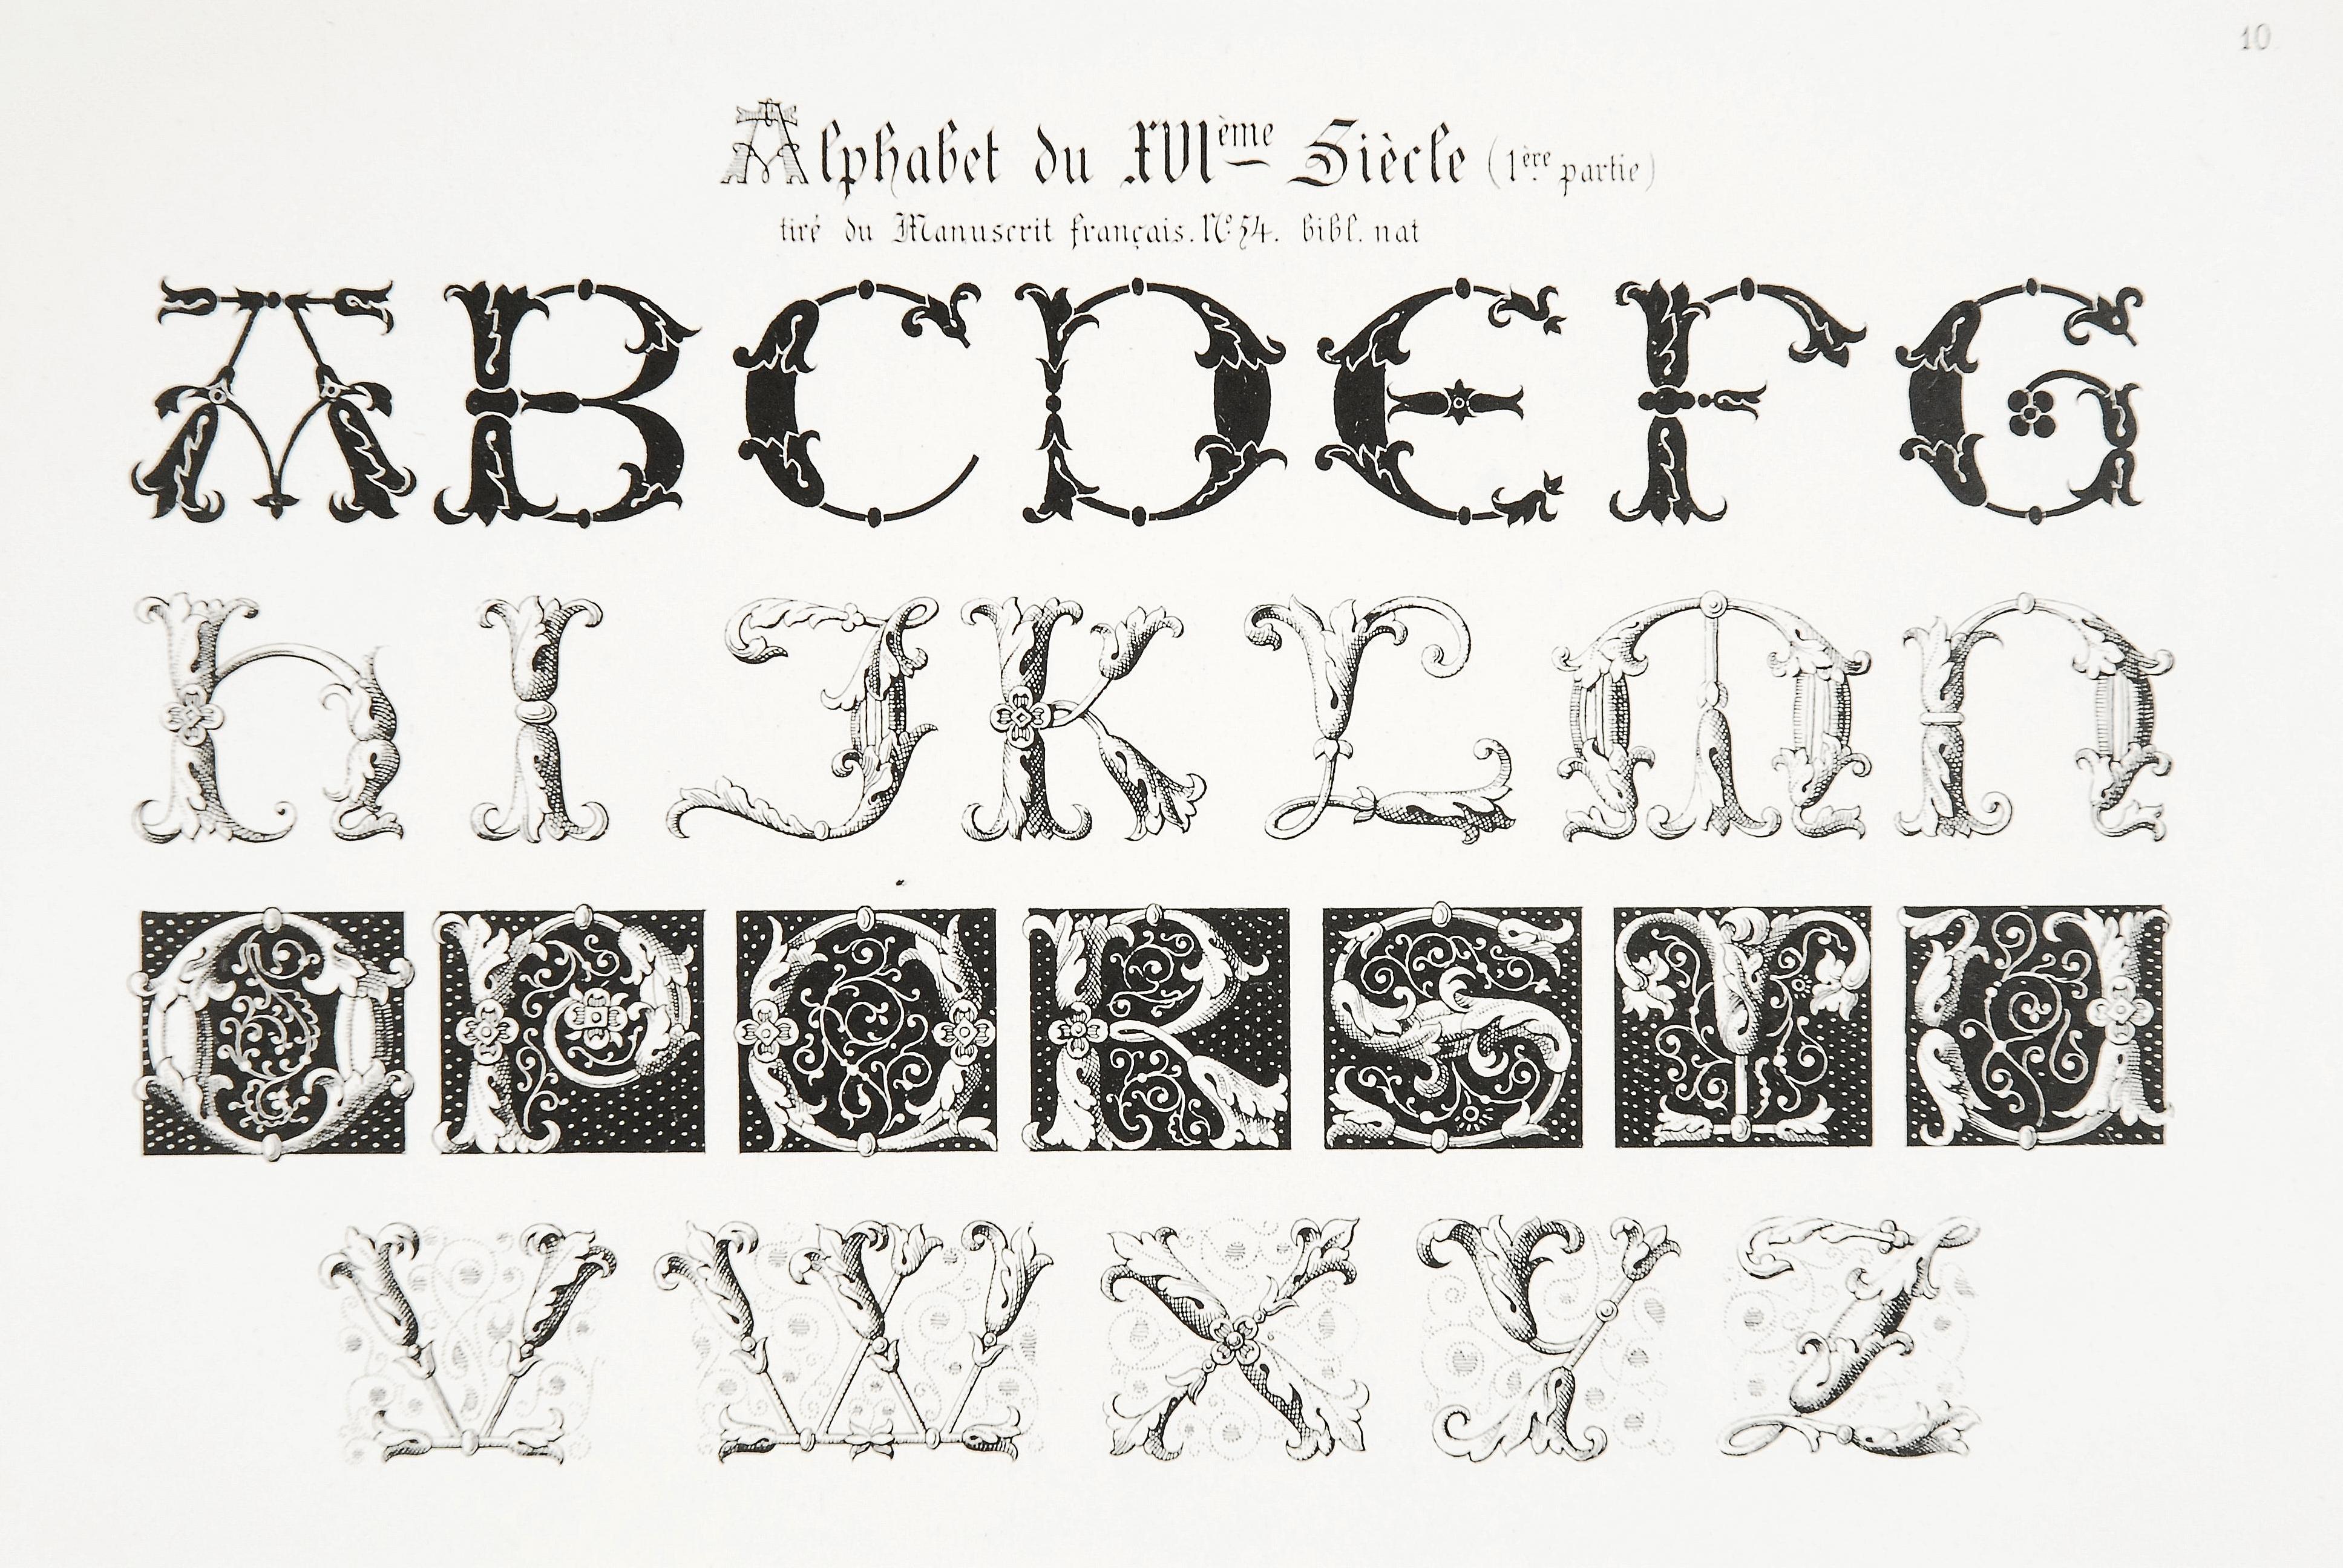 10
Alphabet du XVIème Siècle (1ère partie)
tiré du Manuscrit français. Nº 54. bibl. nat
A B C D E F G
h I J K L M N
O P Q R S T U
V W X Y Z